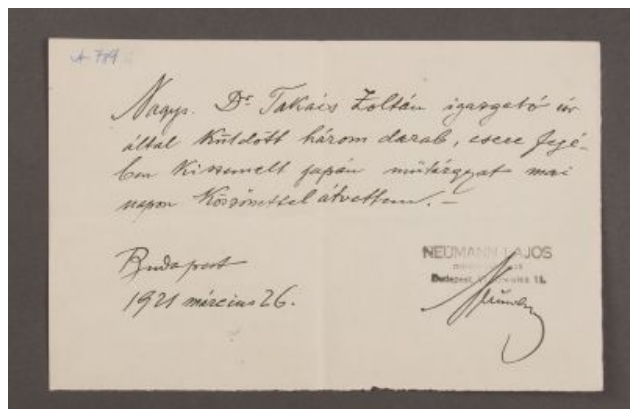 A. 789
Nagys. Dr. Takács Zoltán igazgató úr
által küldött három darab, csere fejé-
ben kiszemelt japán műtárgyat mai
napon köszönettel átvettem. -
Budapest
1921 március 26.
NEUMANN LAJOS
Budapest,